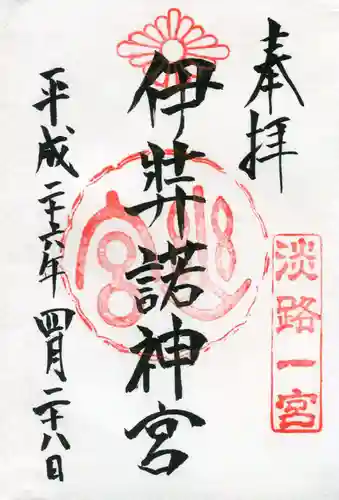 奉拝
淡路一宮
伊弉諾神宮
平成二十六年四月二十八日